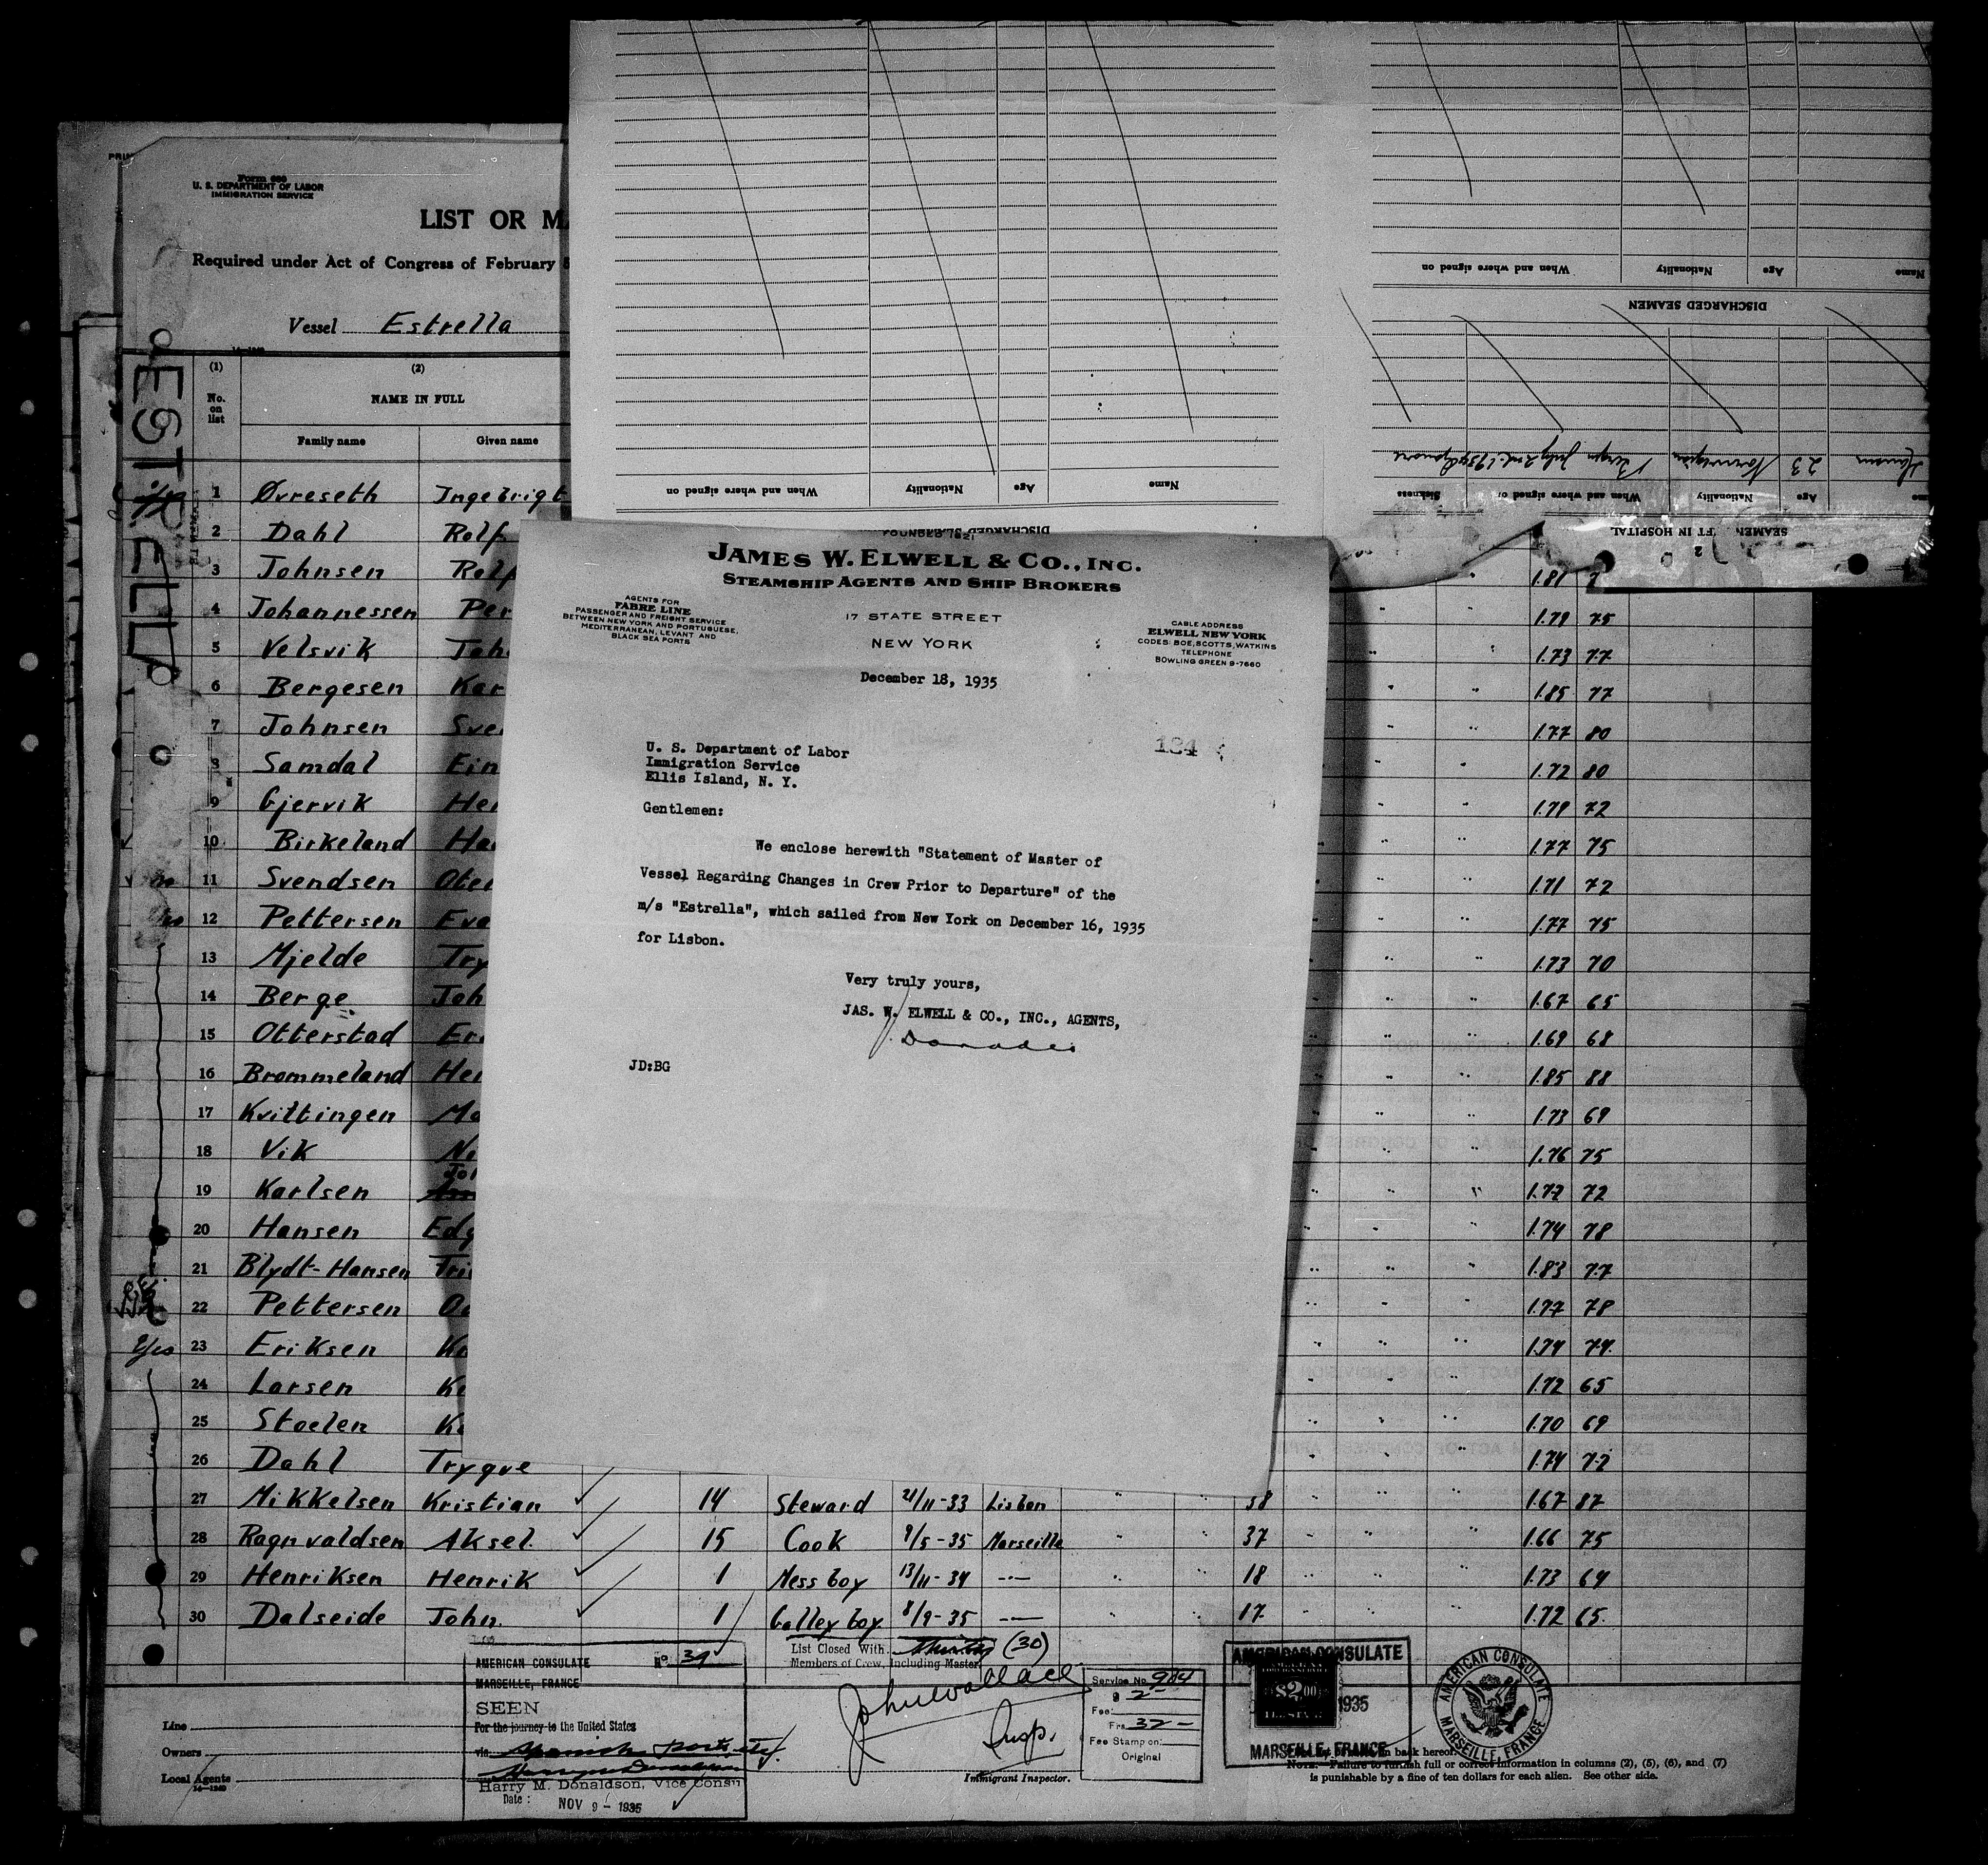 Form 680
U. S. DEPARTMENT OF LABOR
IMMIGRATION SERVICE
LIST OR MA
Required under Act of Congress of February 5
Vessel Estrella
ESTRELLA
(1) (2)
No. on list
NAME IN FULL
Family name Given name
1 Øvreseth Ingebrigt
2 Dahl Rolf
3 Johnsen Rolf 1.81
4 Johannessen Per 1.79 75
5 Velsvik Joh 1.73 77
6 Bergesen Kar 1.85 77
7 Johnsen Sve 1.77 80
8 Samdal Ein 1.72 80
9 Gjervik He 1.79 72
10 Birkeland Ha 1.77 75
11 Svendsen 1.71 72
12 Pettersen 1.77 75
13 Mjelde Try 1.73 70
14 Berge Joh 1.67 65
15 Otterstad 1.69 68
16 Brommeland He 1.85 88
17 Kvittingen Ma 1.73 69
18 Vik 1.76 75
19 Karlsen 1.77 72
20 Hansen Edg 1.74 78
21 Blydt-Hansen 1.83 77
22 Pettersen 1.77 78
Yes 23 Eriksen 1.74 74
24 Larsen 1.72 65
25 Stoelen 1.70 69
26 Dahl Trygve 1.74 72
27 Mikkelsen Kristian 14 Steward 21/11-33 Lisbon " " 38 " " " 1.67 87
28 Ragnvaldsen Aksel 15 Cook 9/5-35 Marseille " " 37 " " " 1.66 75
29 Henriksen Henrik 1 Mess boy 13/11-34 -"- " " 18 " " " 1.73 64
30 Dalseide John 1 Galley boy 8/9-35 -"- " " 17 " " " 1.72 65
Name Age Nationality When and where signed on
DISCHARGED SEAMEN
SEAMEN FT IN HOSPITAL
Age Nationality When and where signed on Sickness
Hansen 23 Norwegian Bergen July 2nd. 1935
DISCHARGED SEAMEN
Name Age Nationality When and where signed on
FOUNDED 1821
JAMES W. ELWELL & CO., INC.
STEAMSHIP AGENTS AND SHIP BROKERS
AGENTS FOR
FABRE LINE
PASSENGER AND FREIGHT SERVICE
BETWEEN NEW YORK AND PORTUGUESE,
MEDITERRANEAN, LEVANT AND
BLACK SEA PORTS
17 STATE STREET
NEW YORK
CABLE ADDRESS
ELWELL NEW YORK
CODES: BOE, SCOTTS, WATKINS
TELEPHONE
BOWLING GREEN 9-7660
December 18, 1935
184
U. S. Department of Labor
Immigration Service
Ellis Island, N. Y.
Gentlemen:
We enclose herewith "Statement of Master of
Vessel Regarding Changes in Crew Prior to Departure" of the
m/s "Estrella", which sailed from New York on December 16, 1935
for Lisbon.
Very truly yours,
JAS. W. ELWELL & CO., INC., AGENTS,
JD:BG
List Closed With (30)
Members of Crew, Including Master
John Wallace
Insp.
Immigrant Inspector.
AMERICAN CONSULATE No. 34
MARSEILLE, FRANCE
SEEN
For the journey to the United States
via Spanish ports
Harry M. Donaldson, Vice Consul
Date: NOV 9 - 1935
Service No. 984
$ 2-
Fee:
Frs 32-
Fee Stamp on:
Original
AMERICAN CONSULATE
$2.00
1935
MARSEILLE, FRANCE
AMERICAN CONSULATE
MARSEILLE, FRANCE
Line
Owners
Local Agents
14—1240
n back hereof.
NOTE.—Failure to furnish full or correct information in columns (2), (5), (6), and (7)
is punishable by a fine of ten dollars for each alien. See other side.